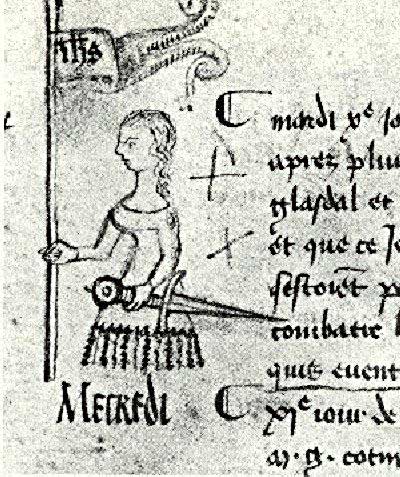 ihs
mardi xe jo
aprez plu
glasdal et
et que ce Je
sestoiēt p
combatre l
quis euent
Mecredi
xie iour de
m. g. cotin